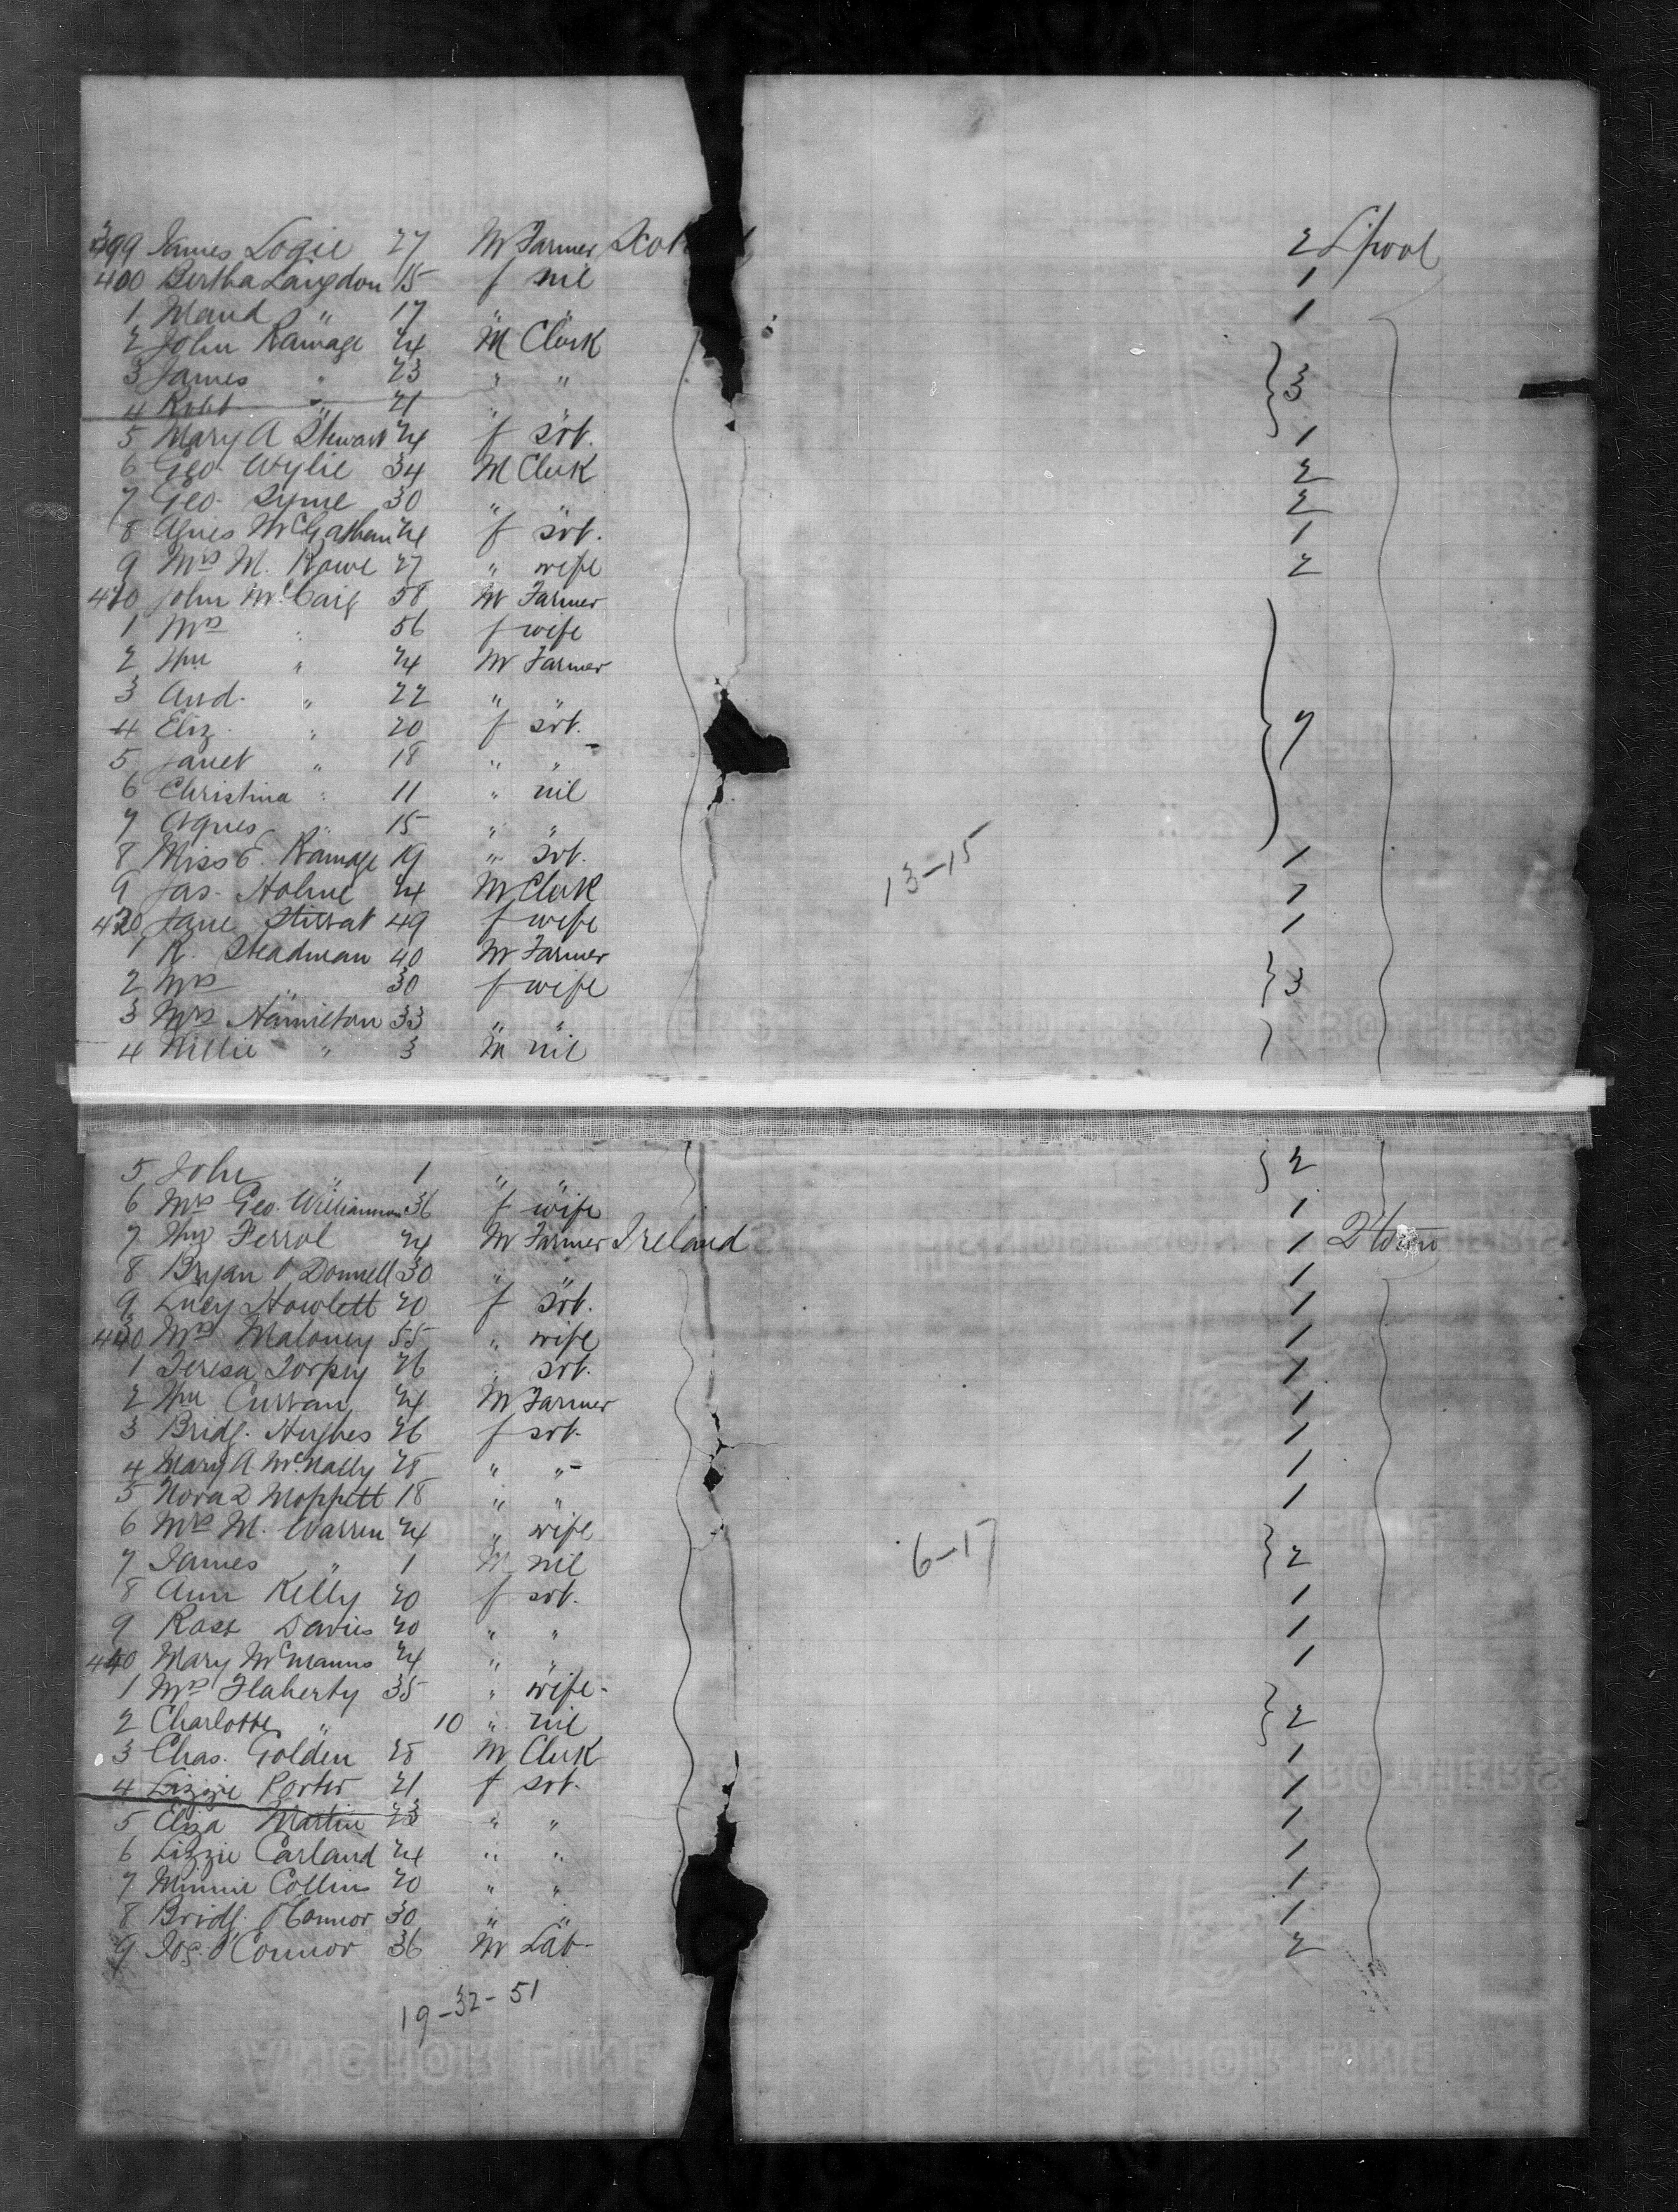 399 James Logie 27 M Farmer Scot 2 L'pool
400 Bertha Langdon 15 f nil 1
1 Maud " 17 " " 1
2 John Ramage 24 M Clerk
3 James " 23 " " 3
4 Robt " 21 "
5 Mary A Stewart 24 f svt. 1
6 Geo. Wylie 34 M Clerk 2
7 Geo. Syme 30 " " 2
8 Agnes 24 f svt. 1
9 Mrs M. Rowe 27 " wife 2
410 John McCaig 58 M Farmer
1 Mrs " 56 f wife
2 Wm " 24 M Farmer
3 And. " 22 " "
4 Eliz. " 20 f svt. 7
5 Janet " 18 " "
6 Christina " 11 " nil
7 Agnes " 15 " "
8 Miss E. Ramage 19 " svt. 1
13-15
9 Jas. Holme 24 M Clerk 1
420 Jane Stirrat 49 f wife 1
1 R. Steadman 40 M Farmer
2 Mrs " 30 f wife 3
3 Mrs Hamilton 33 " "
4 Willie " 3 M nil
5 John " 1 " " 2
6 Mrs Geo. Williamson 36 f wife 1
7 Wm Ferrol 24 M Farmer Ireland 1
8 Bryan O'Donnell 30 " " 1
9 Lucy Howlett 20 f svt. 1
430 Mrs Maloney 55 " wife 1
1 Teresa Torpey 26 " svt. 1
2 Wm Curran 24 M Farmer 1
3 Bridg. Hughes 26 f svt. 1
4 Mary A. McNally 28 " " 1
5 Nora D Moppett 18 " " 1
6 Mrs M. Warren 24 " wife
6-17
7 James " 1 M nil 2
8 Ann Kelly 20 f svt. 1
9 Rose Davies 20 " " 1
440 Mary McManus 24 " " 1
1 Mrs Flaherty 35 " wife
2 Charlotte " 10 " nil 2
3 Chas. Golden 28 M Clerk 1
4 Lizzie Porter 21 f svt. 1
5 Eliza Martin 23 " " 1
6 Lizzie Earland 24 " " 1
7 Minnie Collins 20 " " 1
8 Bridg. O'Connor 30 " " 1
9 Jos. O'Connor 36 M Lab 2
19-32-51
ANCHOR LINE ANCHOR LINE